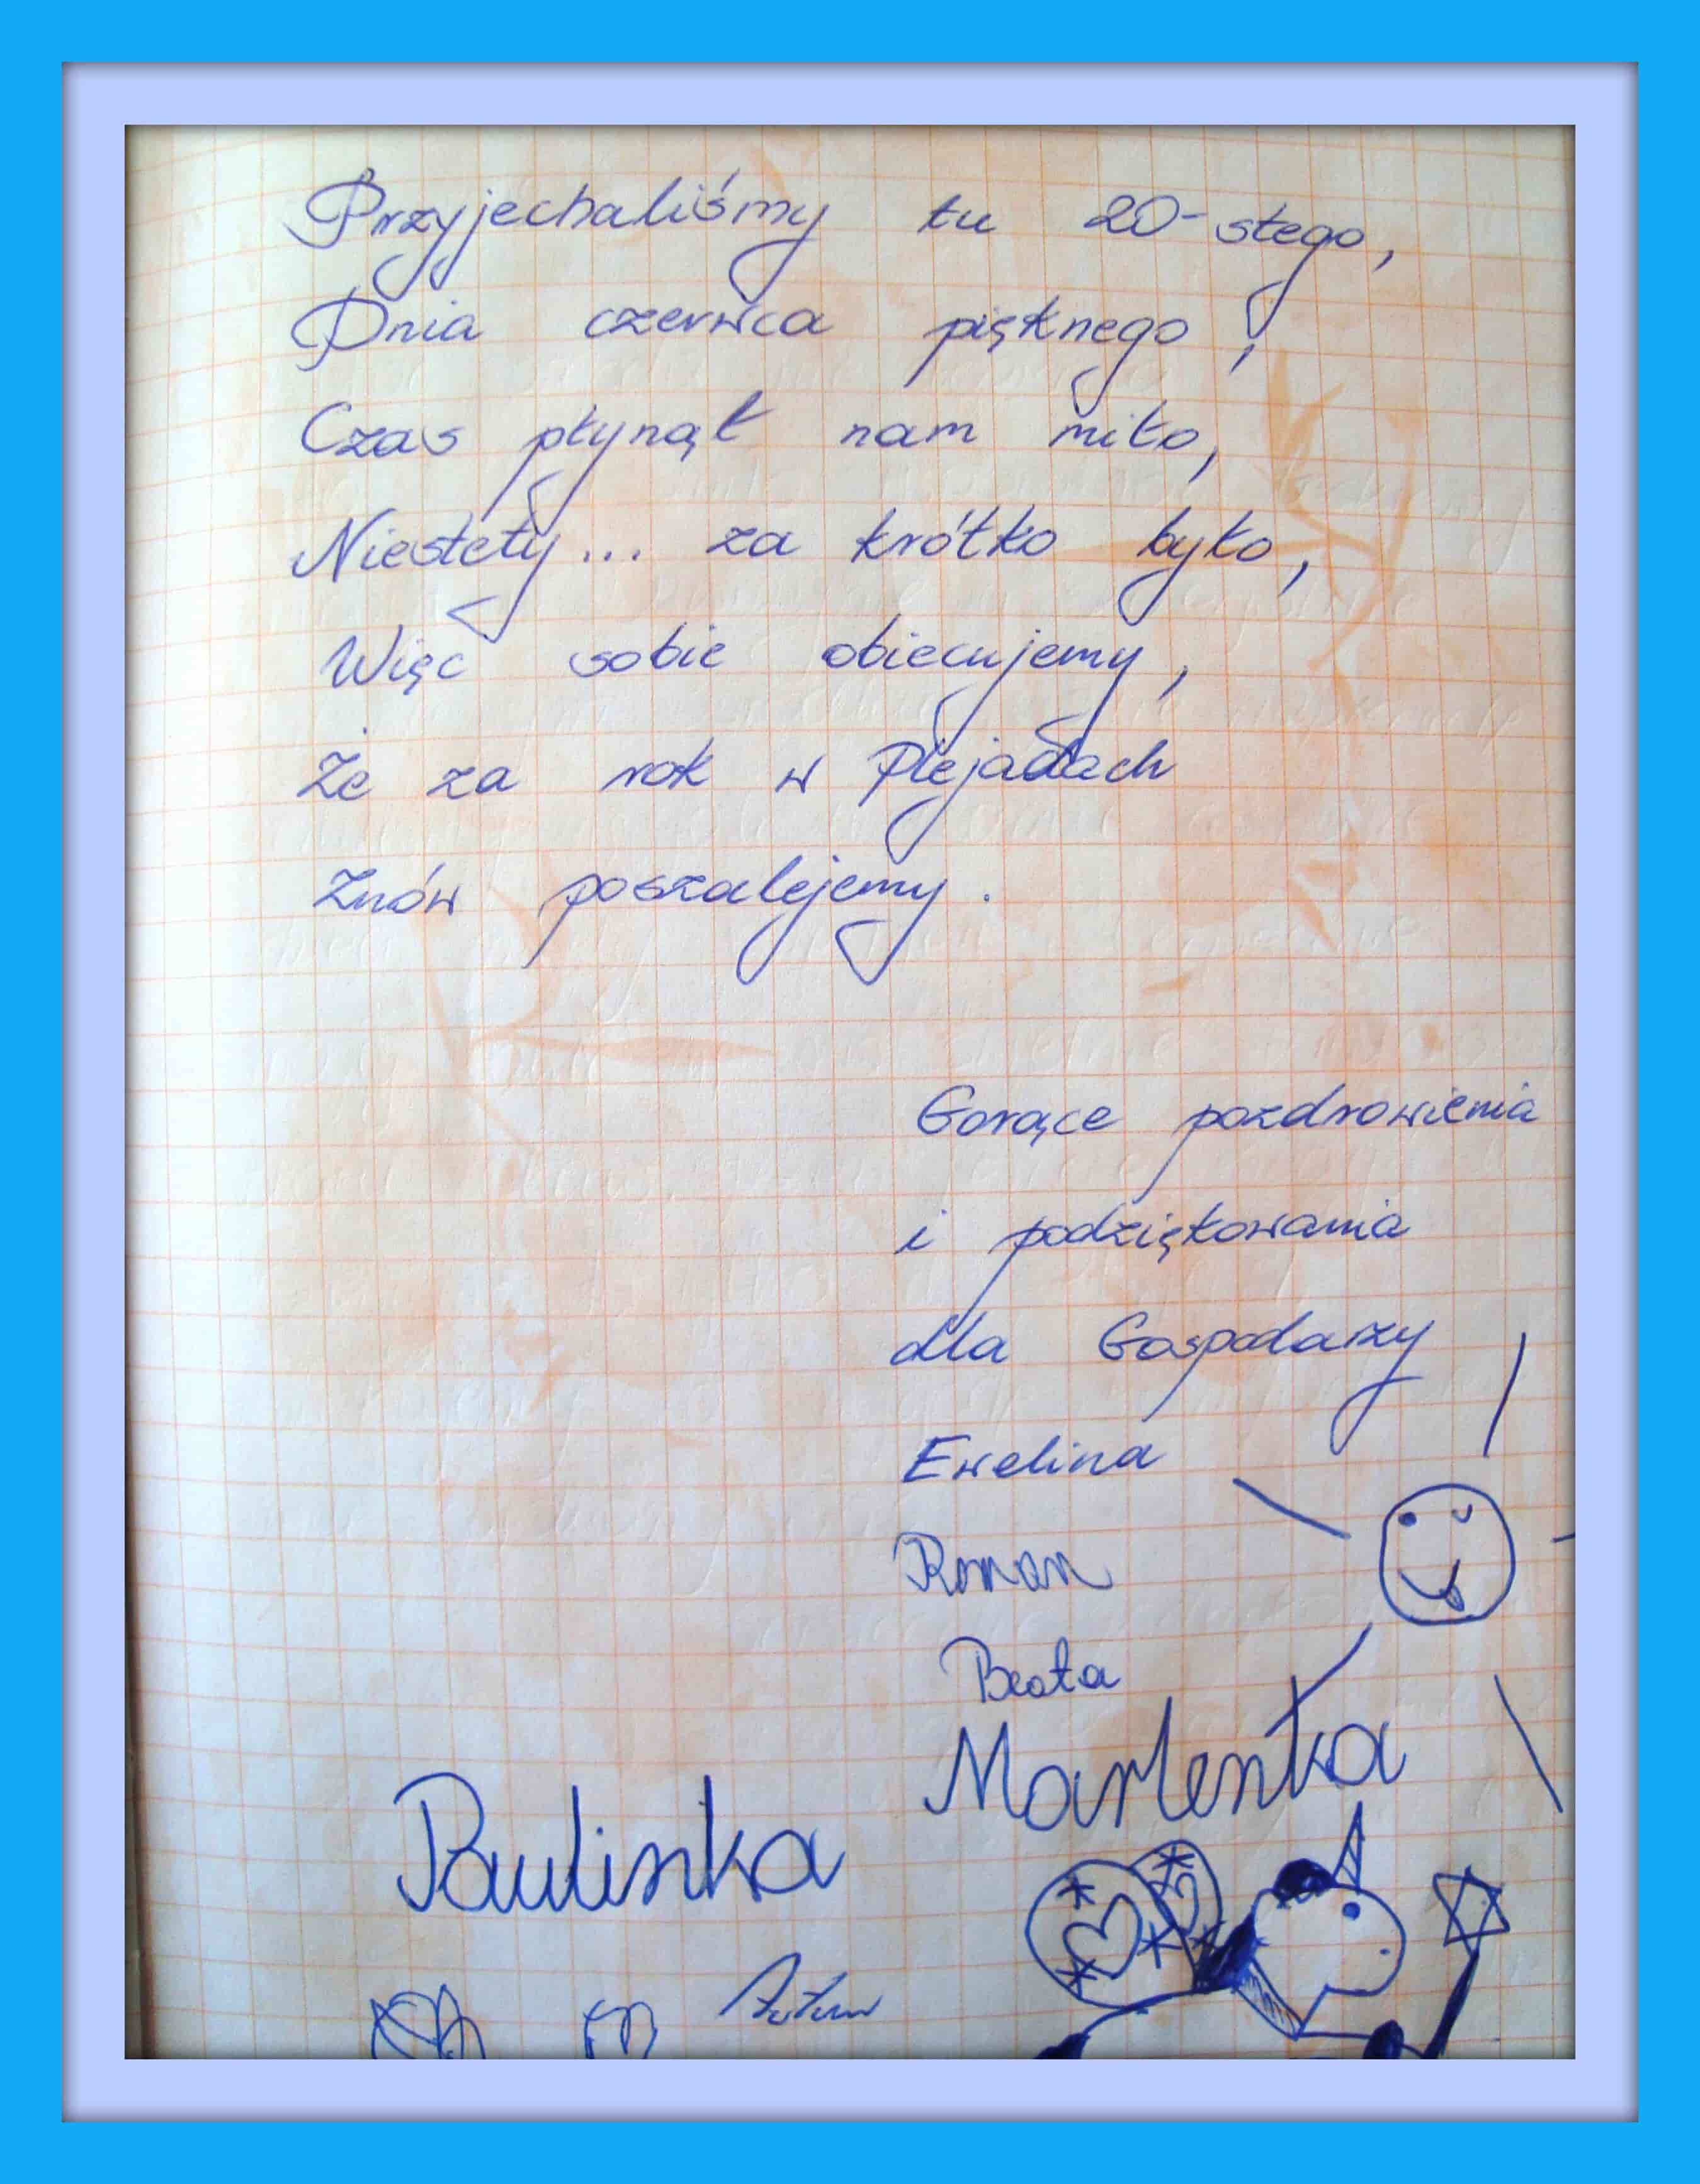 Przyjechaliśmy tu 20-stego,
Dnia czerwca pięknego,
Czas płynął nam miło,
Niestety... za krótko było,
Więc sobie obiecujemy,
Że za rok w Plejadach
Znów poszalejemy.
Gorące pozdrowienia
i podziękowania
dla Gospodarzy
Ewelina
Roman
Beata
Marlenka
Paulinka
Artur